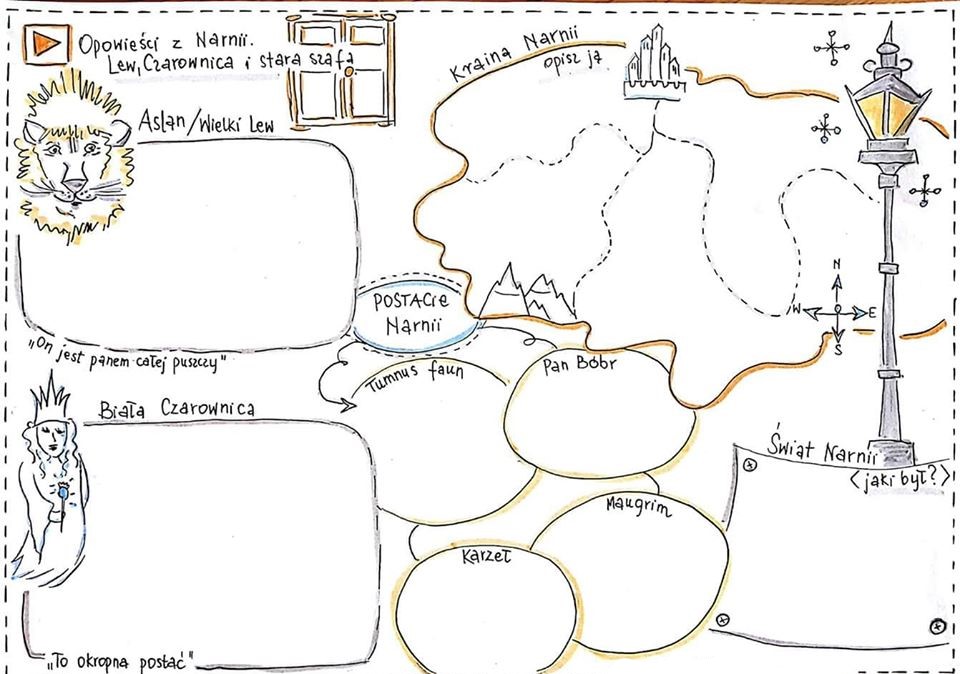 Opowieści z Narnii.
Lew, Czarownica i stara szafa
Aslan/Wielki Lew
„On jest panem całej puszczy"
Biała Czarownica
„To okropna postać"
POSTACIE
Narnii
Tumnus faun
Pan Bóbr
Maugrim
Karzeł
Kraina Narnii
opisz ją
N
W
E
S
Świat Narnii
<jaki był?>